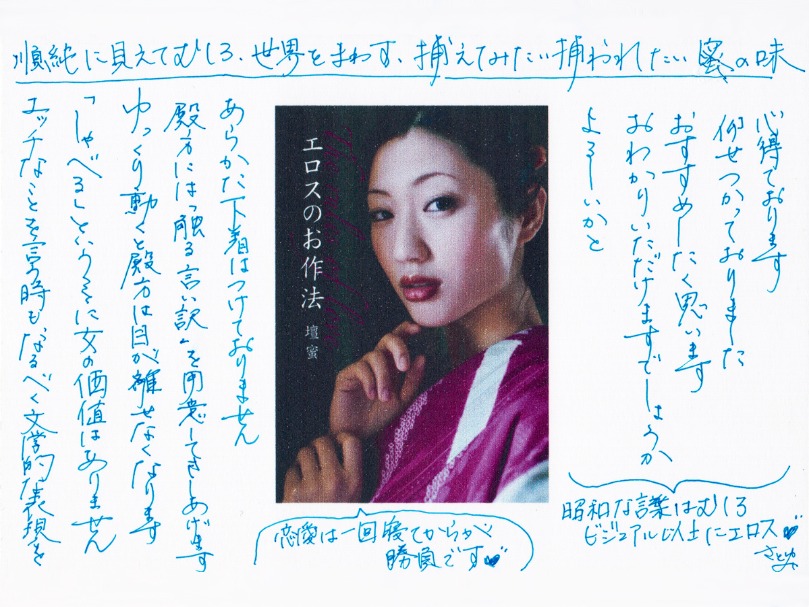 順純に見えてむしろ、世界をまわす、捕えてみたい捕われたい蜜の味
心得ております
仰せつかっておりました
おすすめしたく思います
おわかりいただけますでしょうか
よろしいかと
昭和な言葉はむしろ
ビジュアル以上にエロス
さとゆみ
エロスのお作法
壇蜜
恋愛は一回寝てからが
勝負です
あらかた下着はつけておりません
殿方には「触る言い訳」を用意してさしあげます
ゆっくり動くと殿方は目が離せなくなります
「しゃべる」というそこに女の価値はありません
エッチなことを言う時も、なるべく文学的な表現を